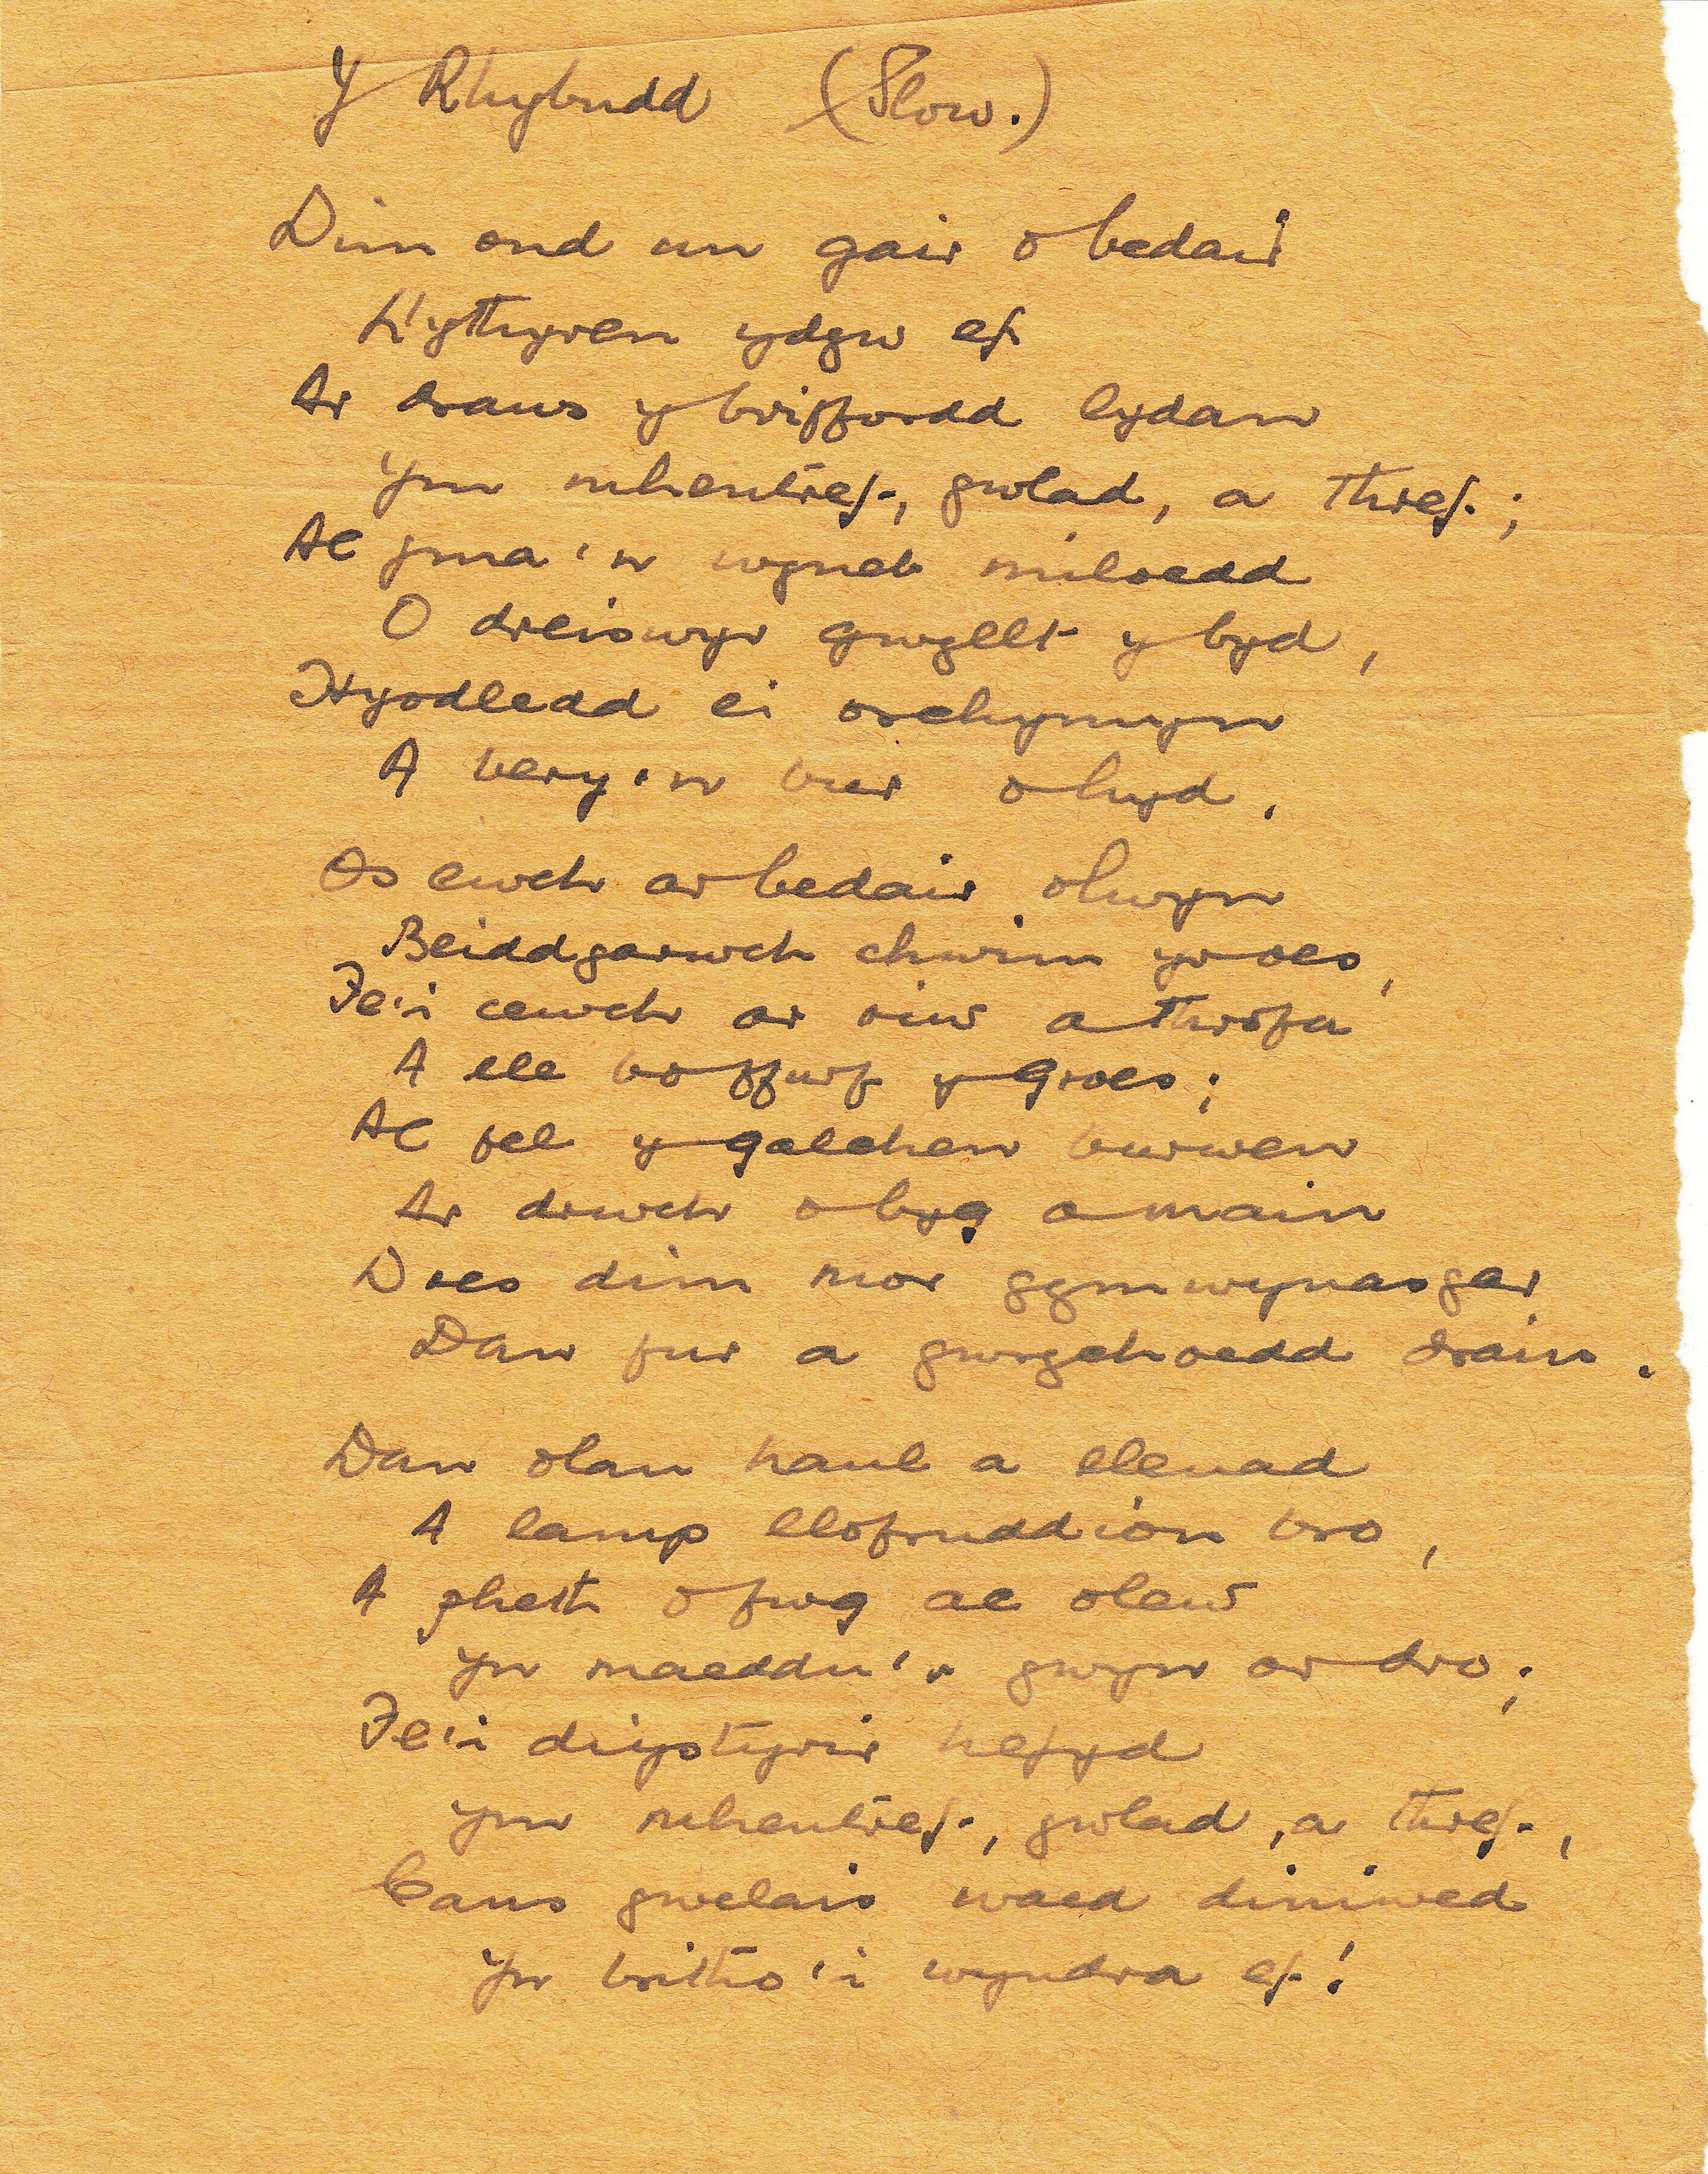 Y Rhybudd (Slow.)
Dim ond un gair o bedair
Llythyren ydyw ef
Ar draws y briffordd lydan
Ym mhentref, gwlad, a thref;
Ac yma'n wyneb miloedd
O dreiswyr gwyllt y byd,
Hyodledd ei orchymyn
A bery'n bur o hyd.
Os ewch ar bedair olwyn
Beiddgarwch chwim yr oes,
Fe'i cewch ar riw a throfa
A lle bo ffurf y groes;
Ac fel y galchen burwen
Ar drwch o byg a main
Does dim mor gymwynasgar
Dan fur a gwrychoedd drain.
Dan olau haul a lleuad
A lamp llofruddion bro,
A pheth o fwg ac olew
Yn maeddu'r gwyn ar dro;
Fe'i diystyrir hefyd
Ym mhentref, gwlad, a thref,
Cans gwelais waed diniwed
Yn britho'i wyndra ef!